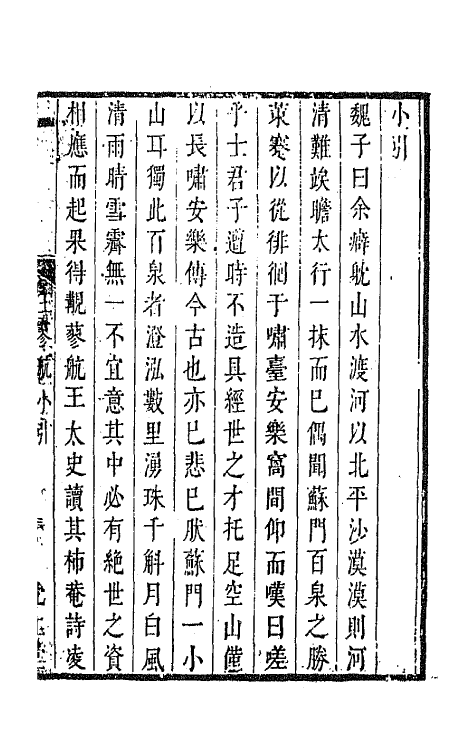 小引
魏子曰余癖躭山水渡河以北平沙漠漠則河
清難竢瞻太行一抹而已偶聞蘇門百泉之勝
策蹇以從徘徊于嘯臺安樂窩間仰而嘆曰嗟
乎士君子遭時不造具經世之才托足空山僅
以長嘯安樂傳今古也亦已悲已肰蘇門一小
山耳獨此百泉者澄泓數里湧珠千斛月白風
清雨晴雪霽無一不宜意其中必有絕世之資
相應而起果得覯蓼航王太史讀其柿菴詩凌
小引